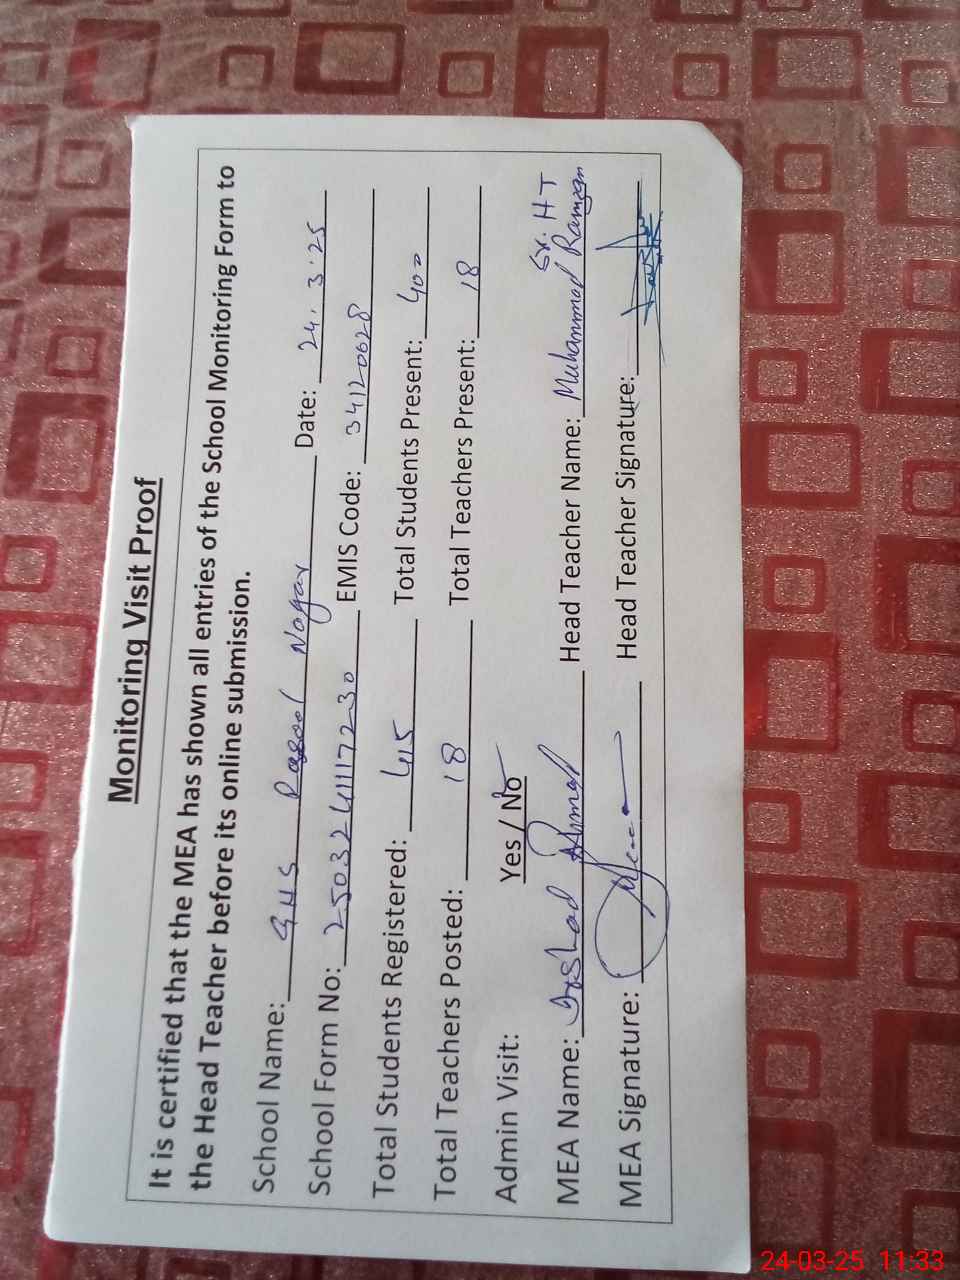 Monitoring Visit Proof
It is certified that the MEA has shown all entries of the School Monitoring Form to
the Head Teacher before its online submission.
School Name: GHS Rasool Nagar Date: 24.3.25
School Form No: 2503241117230 EMIS Code: 34120628
Total Students Registered: 415 Total Students Present: 400
Total Teachers Posted: 18 Total Teachers Present: 18
Admin Visit: Yes / No Sr. HT
MEA Name: Irshad Ahmad Head Teacher Name: Muhammad Ramzan
MEA Signature: Head Teacher Signature:
24-03-25 11:33